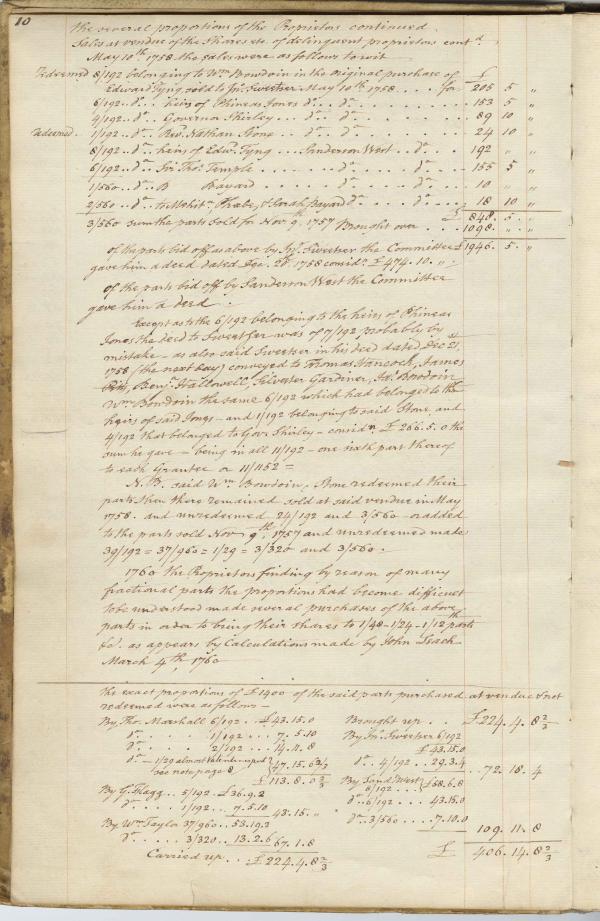 10
the several proportions of the Proprietors continued
Sales at vendue of the Shares etc of delinquent proprietors contd.
May 10th 1758 the sales were as follows to wit
Redeemed 8/192 belonging to Wm Bowdoin in the original purchase of £
Edward Tyng sold to Jn. Sweetser May 10th 1758 .... for 205 5 "
6/192 .. do. heirs of Phineas Jones do .. do ... 153 5 "
4/192 .. do. Governor Shirley ... do .. do ... 89 10 "
Redeemed . 1/192 .. do. Rev. Nathan Stone .. do .. do ... 24 10 "
8/192 .. do heirs of Edwd. Tyng ... Sanderson West .. do .. 192 " "
6/192 .. do Sir Thos. Temple ... do ... do .. 155 5 "
1/560 .. do B Bayard ... do ... do .. 10 " "
2/560 .. do Phebe, & Sarah Bayard do ... do ... 18 10 "
3/560 sum the parts sold for £ 848. 5. "
Nov 9th. 1757 Brought over ... 1098. " "
of the parts bid off as above by Jn. Sweetser the Committee £1946. 5. "
gave him a deed dated Dec. 20th 1758 consid. £474. 10. ".
of the parts bid off by Sanderson West the Committee
gave him a deed .
Except as to the 6/192 belonging to the heirs of Phineas
Jones the deed to Sweetser was of 7/192, probably by
mistake – as also said Sweetser in his deed dated Dec 21
1758 (the next day) conveyed to Thomas Hancock, James
Pitts, Benj. Hallowell, Silvester Gardiner, Jas. Bowdoin
Wm Bowdoin the same 6/192 which had belonged to the
heirs of said Jones – and 1/192 belonging to said Stone, and
4/192 that belonged to Gov. Shirley – considn £ 266.5.0 the
sum he gave – being in all 11/192 – one sixth part thereof
to each Grantee or 11/1152 =
N.B. said Wm Bowdoin, Stone redeemed their
parts then there remained sold at said vendue in May
1758. and unredeemed 24/192 and 3/560 – or added
to the parts sold Nov 9th. 1757 and unredeemed made
39/192 = 37/960 = 1/29 = 3/320 and 3/560.
1760 the Proprietors finding by reason of many
fractional parts the proportions had become difficult
to be understood made several purchases of the above
parts in order to bring their shares to 1/48 – 1/24 – 1/12th parts
&c. as appears by Calculations made by John Leach
March 4th, 1760
the exact proportions of £1400 of the said parts purchased at vendue & not
redeemed were as follows –
By Tho. Marshall 6/192 ... £43.15.0
do. ... 1/192 ... 7. 5. 10
do. ... 2/192 ... 14. 11. 8
do – 1/29
see note page 8 } 47. 15. 6 2/3
£ 113. 8. 0 2/3
By G. Flagg .. 5/192 . £36. 9. 2
do ... 1/192 ... 7. 5. 10 43. 15. "
By Wm Taylor 37/960 .. 53. 19. 2
do ..... 3/320 .. 13. 2. 6 67. 1. 8
Carried up ... £ 224. 4. 8 2/3
Brought up ... £224. 4. 8 2/3
By Jn. Sweetser 6/192
£43.15.0
do. .. 4/192 ... 29. 3. 4 72. 18. 4
By Sand. West
8/192 ... } £58. 6. 8
do .. 6/192 ... 43. 15. 0
do .. 3/560 .... 7. 10. 0
109. 11. 8
£ 406. 14. 8 2/3